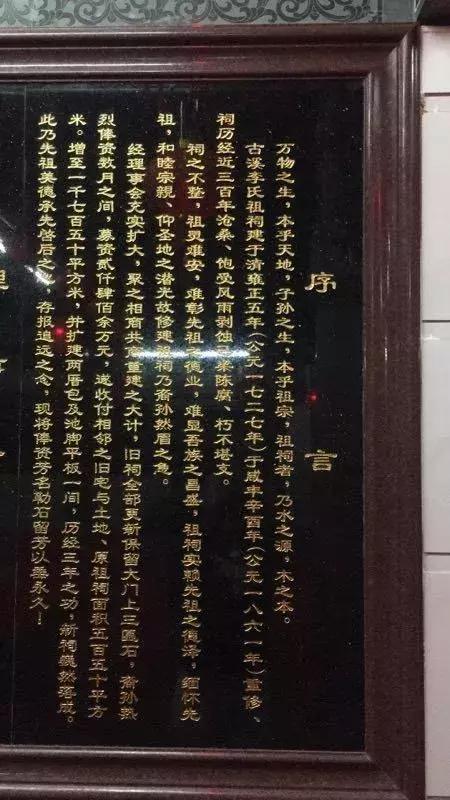 序言
万物之生，本乎天地，子孙之生，本乎祖宗，祖祠者，乃水之源，木之本。
古溪李氏祖祠建于清雍正五年（公元一七二七年）于咸丰辛酉年（公元一八六一年）重修、
祠历经近三百年沧桑、饱受风雨剥蚀梁陈腐、朽不堪支。
祠之不整，祖灵难安，难彰先祖之德业，难显吾族之昌盛，祖祠实赖先祖之德泽，缅怀先
祖，和睦宗親、仰圣地之潜光故修建祖祠乃裔孙燃眉之急。
经理事会充实扩大、聚之相商共重建之大计，旧祠全部更新保留大门上三匾石，裔孙热
烈俸资数月之间，募资贰仟肆佰余万元，遂收付相邻之旧宅与土地、原祖祠面积五百五十平方
米。增至一千七百五十平方米，并扩建两厝包及池脚平板一间，历经三年之功，新祠巍然落成。
此乃先祖美德承先啓后之，存报追远之念，现将俸资芳名勒石留芳以垂永久！